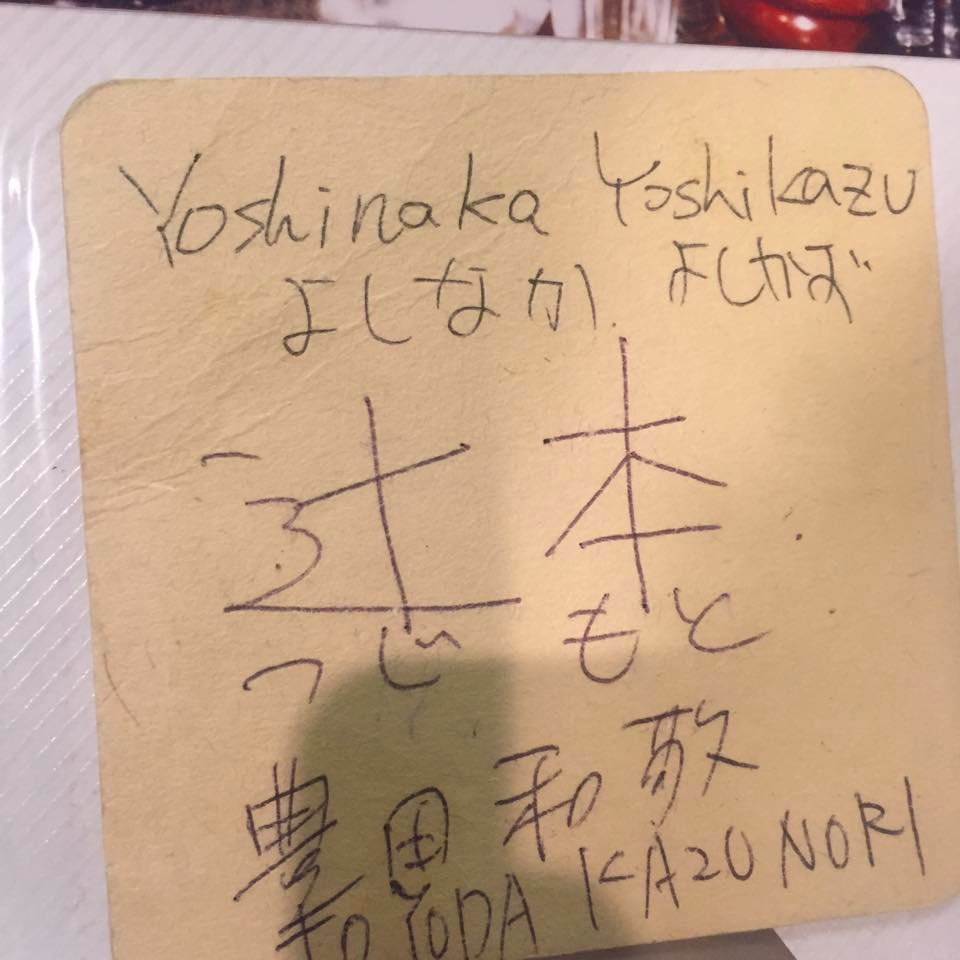 Yoshinaka Yoshikazu
よしなか よしかず
辻本
つじ もと
豊田 和敬
TOYODA KAZUNORI